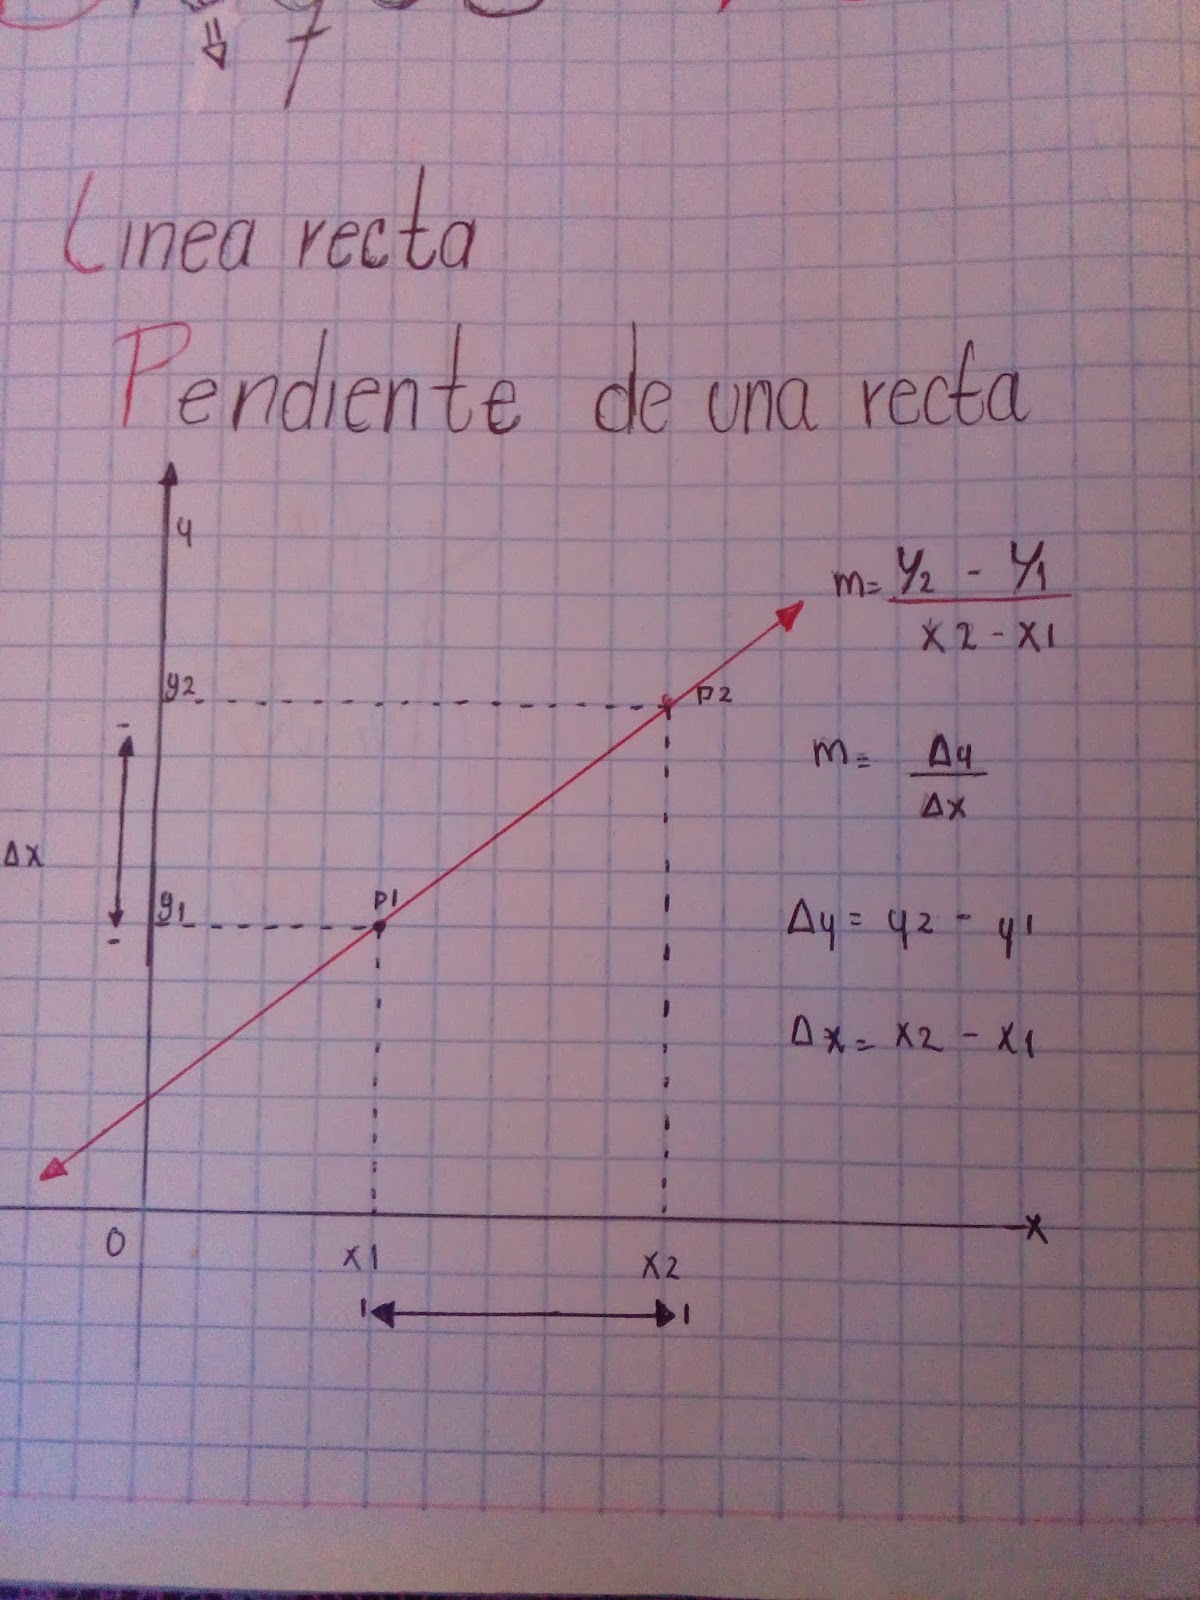 Linea recta
Pendiente de una recta
y
m= y2 - y1
x2 - x1
y2
p2
m= Δy
Δx
Δx
y1
p1
Δy = y2 - y1
Δx = x2 - x1
0
x1
x2
x